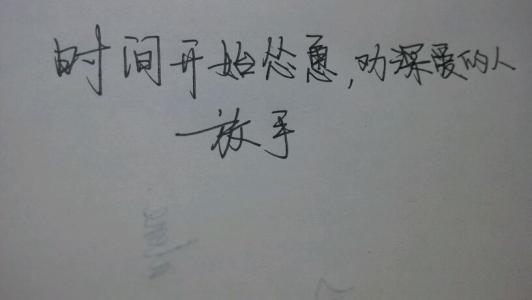 时间开始怂恿,劝深爱的人
放手